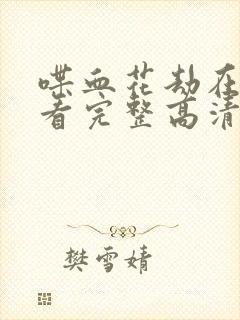 喋血花劫在
看完整高清
樊雪婧